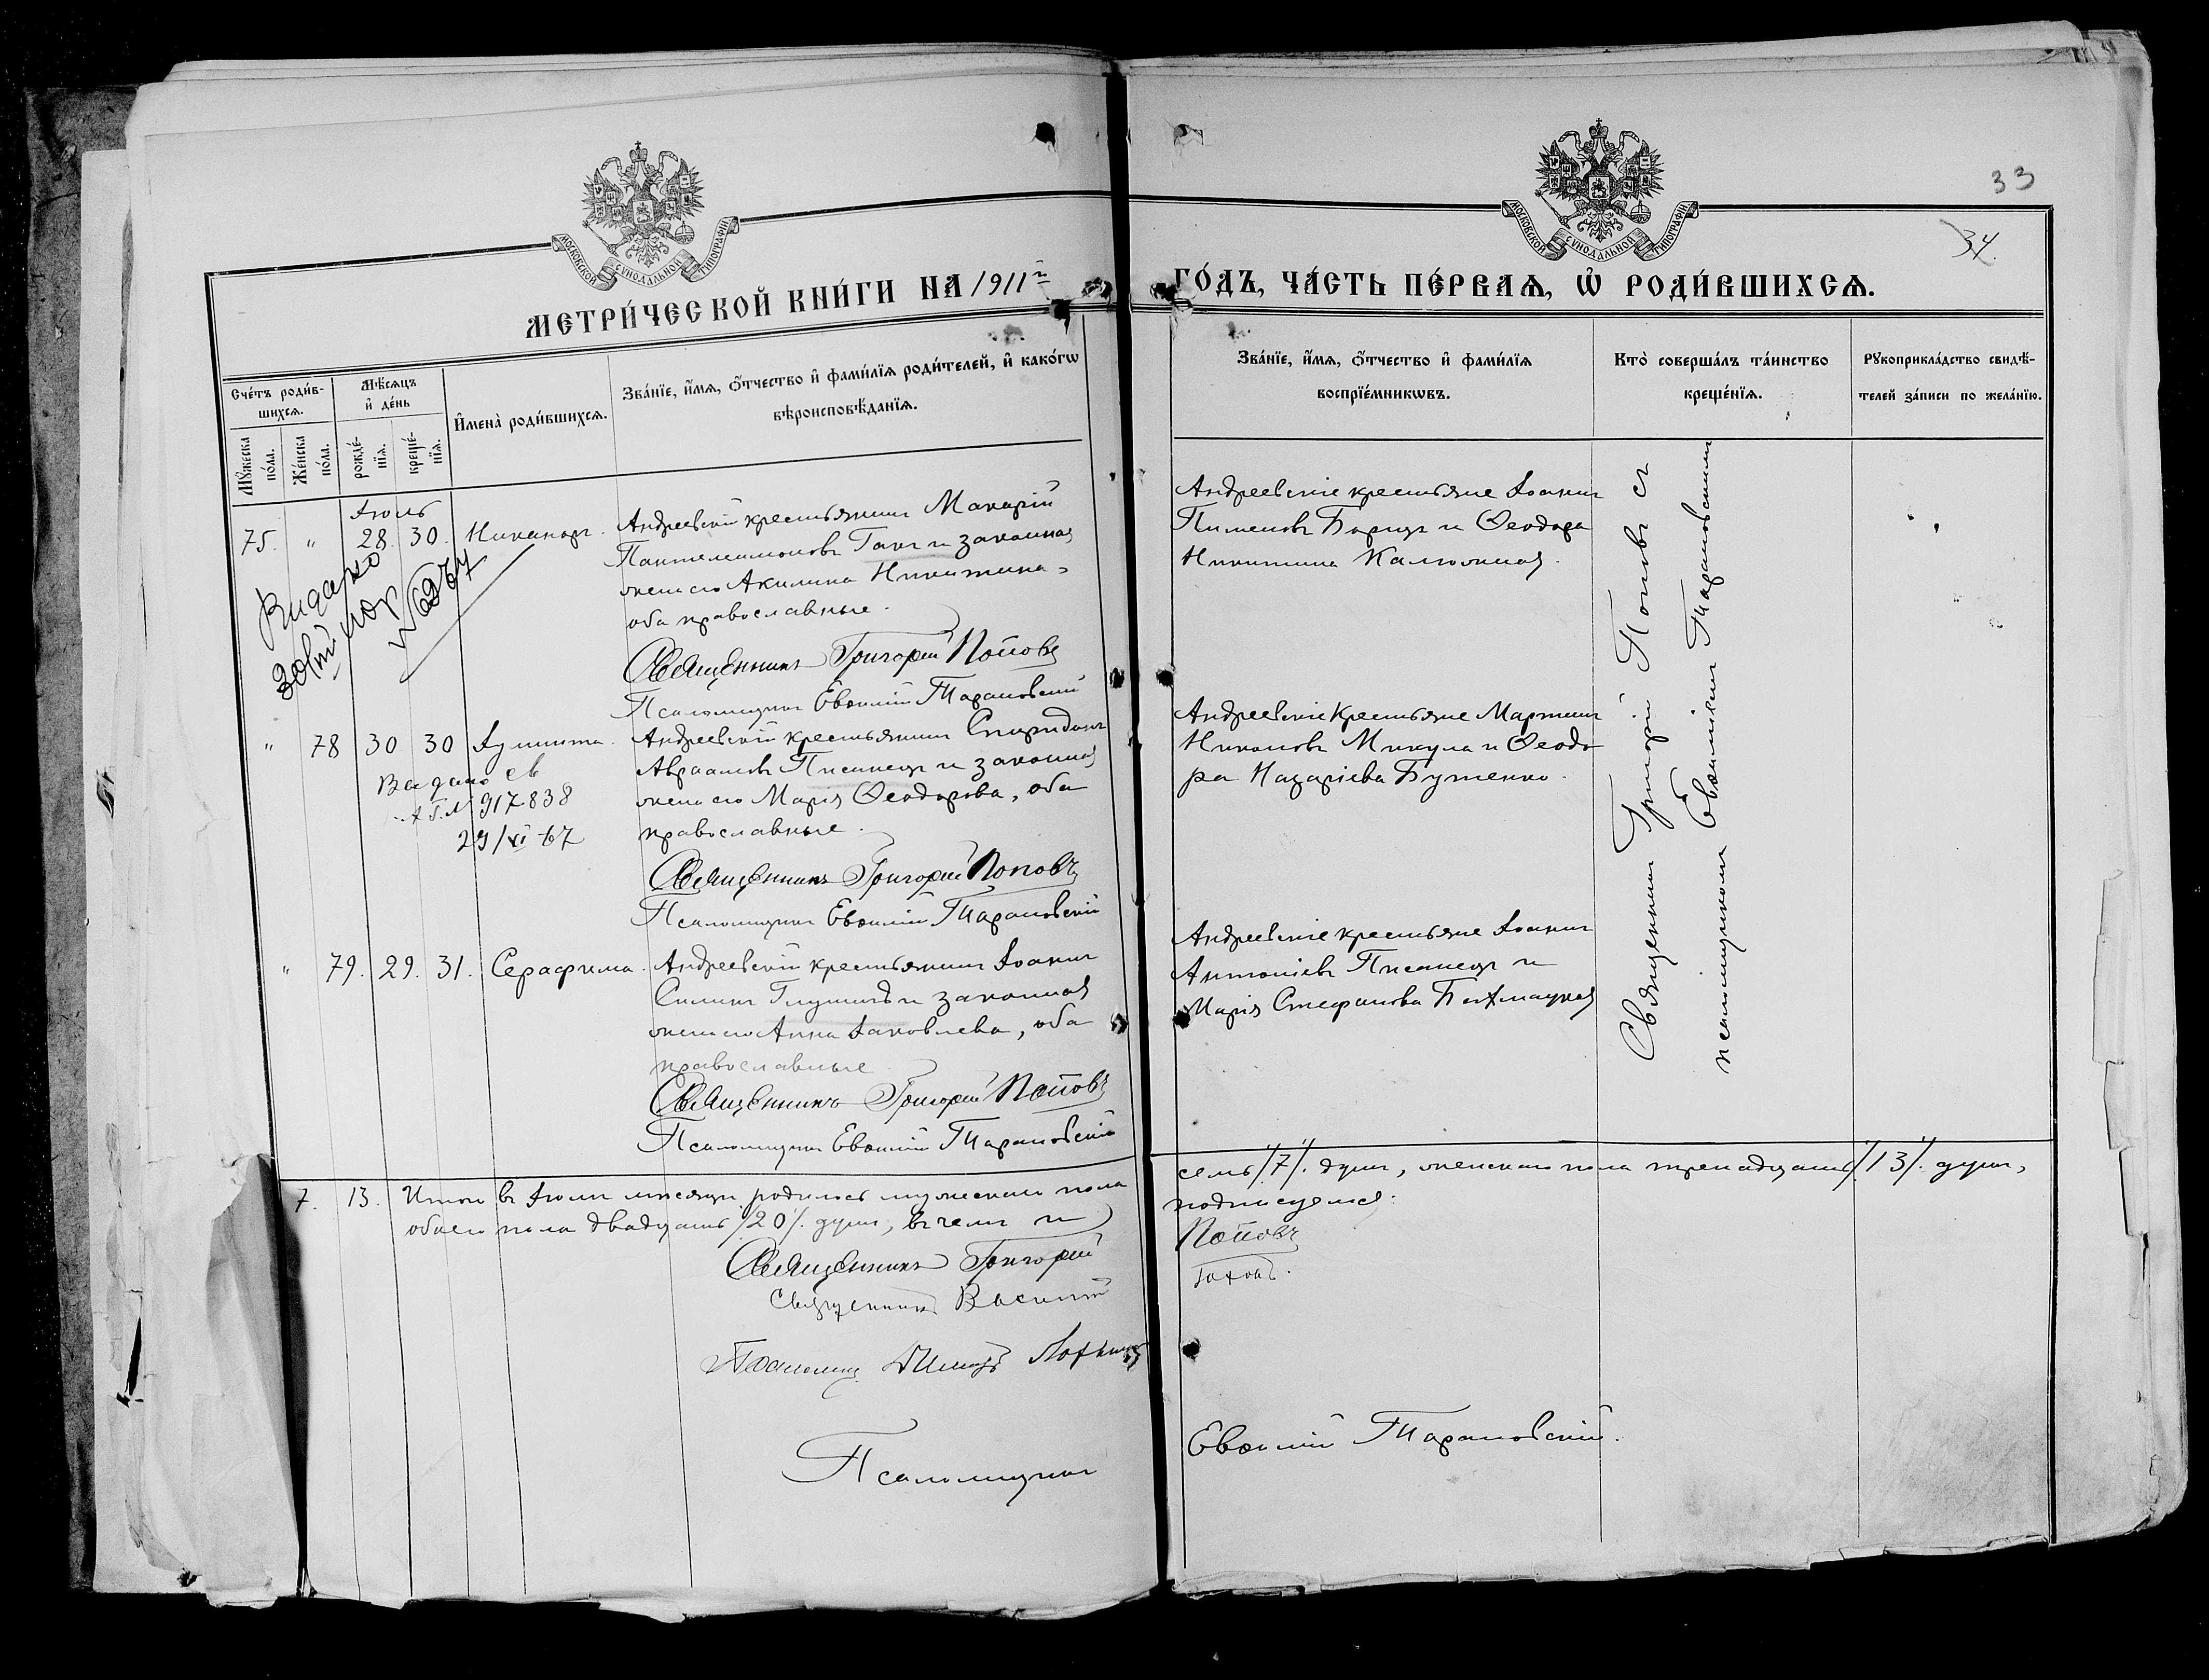 33
34.
МОСКОВСКОЙ СѴНОДАЛЬНОЙ ТИПОГРАФІИ
МОСКОВСКОЙ СѴНОДАЛЬНОЙ ТИПОГРАФІИ
МЕТРИ́ЧЕСКОЙ КНИ́ГИ НА 1911й ГО́ДЪ, ЧА́СТЬ ПЕ́РВАѦ, Ѡ҆ РОДИ́ВШИХСѦ.
Сче́тъ роди́в-
шихсѧ.
Мꙋ́жеска
по́ла.
Же́нска
по́ла.
Мѣ́сѧцъ
и҆ де́нь
рожде́-
нїѧ.
креще́-
нїѧ.
И҆мена̀ роди́вшихсѧ.
Зва́нїе, и҆́мѧ, ѻ҆́тчество и҆ фами́лїѧ роди́телей, и҆ како́гѡ
вѣроисповѣ́данїѧ.
Зва́нїе, и҆́мѧ, ѻ҆́тчество и҆ фами́лїѧ
воспрїе́мникѡвъ.
Кто̀ соверша́лъ та́инство
креще́нїѧ.
Рꙋкоприкла́дство свидѣ́-
телей за́писи по жела́нїю.
Іюль
75. " 28. 30. Никаноръ.
Андреевскій крестьянинъ Макарій
Пантелеимоновъ Гакъ и законная
жена его Акилина Никитина,
оба православные.
Священникъ Григорій Поповъ
Псаломщикъ Евѳимій Тарановскій
Андреевскіе крестьяне Іоаннъ
Пименовъ Борщъ и Ѳеодора
Никитина Калюжная.
Видано
" 78 30 30 Іулитта.
Видано св
№ 917838
29/XI-67
Андреевскій крестьянинъ Спиридонъ
Авраамовъ Писанецъ и законная
жена его Марія Ѳеодорова, оба
православные.
Священникъ Григорій Поповъ
Псаломщикъ Евѳимій Тарановскій
Андреевскіе крестьяне Мартинъ
Никоновъ Микула и Ѳеодо
ра Назаріева Бутенко.
" 79. 29. 31. Серафима.
Андреевскій крестьянинъ Іоаннъ
Силинъ Глушичъ и законная
жена его Анна Іаковлева, оба
православные.
Священникъ Григорій Поповъ
Псаломщикъ Евѳимій Тарановскій
Андреевскіе крестьяне Іоаннъ
Антоніевъ Писанецъ и
Марія Стефанова Бахмацкая
Священникъ Григорій Поповъ съ
псаломщикомъ Евѳиміемъ Тарановскимъ
7. 13. Итого въ Іюлѣ мѣсяцѣ родилось мужескаго пола семь /7/. душъ, женскаго пола тринадцать /13/. душъ,
обоего пола двадцать /20/. душъ, въ чемъ и подписуемся:
Священникъ Григорій Поповъ
Священникъ Василій
Псаломщ.
Псаломщикъ Евѳимій Тарановскій.